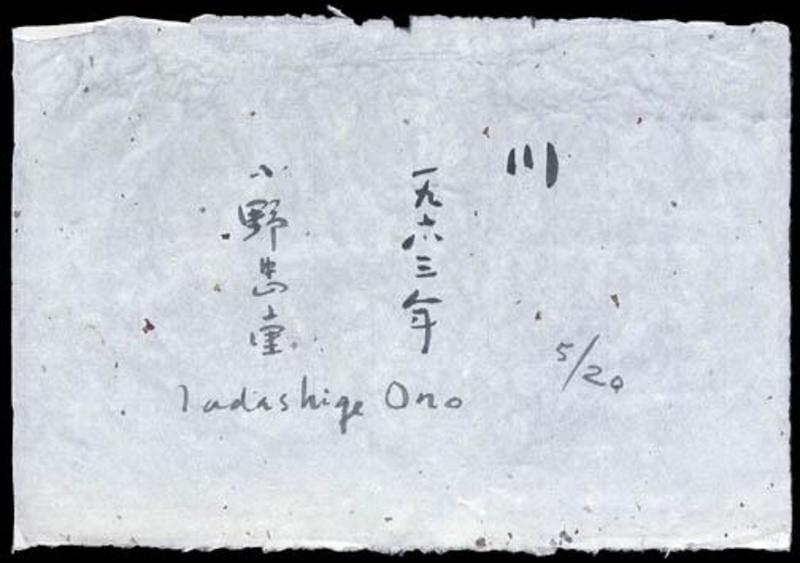 川
一九六三年
小野忠重
Tadashige Ono
5/20